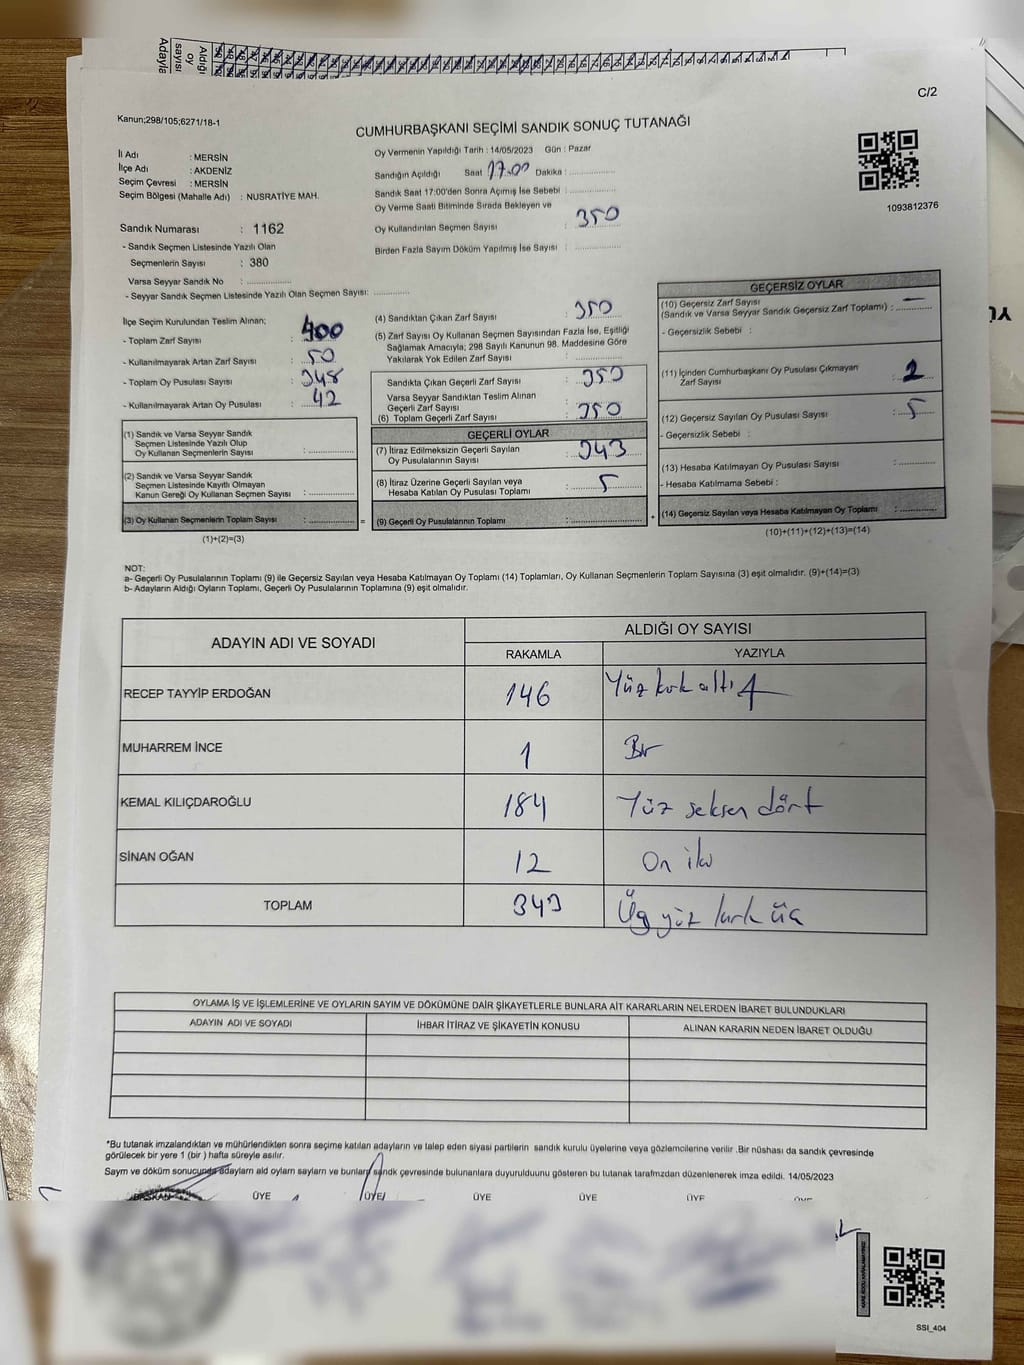 Adayla
sayısı
oy
Aldığı
C/2
Kanun;298/105;6271/18-1
CUMHURBAŞKANI SEÇİMİ SANDIK SONUÇ TUTANAĞI
İl Adı : MERSİN
İlçe Adı : AKDENİZ
Seçim Çevresi : MERSİN
Seçim Bölgesi (Mahalle Adı) : NUSRATİYE MAH.
Sandık Numarası : 1162
- Sandık Seçmen Listesinde Yazılı Olan
Seçmenlerin Sayısı : 380
Varsa Seyyar Sandık No : ..................
- Seyyar Sandık Seçmen Listesinde Yazılı Olan Seçmen Sayısı: ..............
Oy Vermenin Yapıldığı Tarih : 14/05/2023 Gün : Pazar
Sandığın Açıldığı Saat 17.00 Dakika : ..................
Sandık Saat 17:00'den Sonra Açımış İse Sebebi : ..................
Oy Verme Saati Bitiminde Sırada Bekleyen ve
Oy Kullandırılan Seçmen Sayısı : 350
Birden Fazla Sayım Döküm Yapılmış İse Sayısı : ..................
1093812376
İlçe Seçim Kurulundan Teslim Alınan;
- Toplam Zarf Sayısı : 400
- Kullanılmayarak Artan Zarf Sayısı : 50
- Toplam Oy Pusulası Sayısı : 348
- Kullanılmayarak Artan Oy Pusulası : 42
(1) Sandık ve Varsa Seyyar Sandık
Seçmen Listesinde Yazılı Olup
Oy Kullanan Seçmenlerin Sayısı : ..............
(2) Sandık ve Varsa Seyyar Sandık
Seçmen Listesinde Kayıtlı Olmayan
Kanun Gereği Oy Kullanan Seçmen Sayısı : ..............
(3) Oy Kullanan Seçmenlerin Toplam Sayısı : ..............
(1)+(2)=(3)
=
(4) Sandıktan Çıkan Zarf Sayısı : 350
(5) Zarf Sayısı Oy Kullanan Seçmen Sayısından Fazla İse, Eşitliği
Sağlamak Amacıyla; 298 Sayılı Kanunun 98. Maddesine Göre
Yakılarak Yok Edilen Zarf Sayısı : ..................
Sandıkta Çıkan Geçerli Zarf Sayısı : 350
Varsa Seyyar Sandıktan Teslim Alınan
Geçerli Zarf Sayısı
(6) Toplam Geçerli Zarf Sayısı : 350
GEÇERLİ OYLAR
(7) İtiraz Edilmeksizin Geçerli Sayılan
Oy Pusulalarının Sayısı : 343
(8) İtiraz Üzerine Geçerli Sayılan veya
Hesaba Katılan Oy Pusulası Toplamı : 5
(9) Geçerli Oy Pusulalarının Toplamı : ..................
+
GEÇERSİZ OYLAR
(10) Geçersiz Zarf Sayısı
(Sandık ve Varsa Seyyar Sandık Geçersiz Zarf Toplamı) : —
- Geçersizlik Sebebi :
(11) İçinden Cumhurbaşkanı Oy Pusulası Çıkmayan
Zarf Sayısı : 2
(12) Geçersiz Sayılan Oy Pusulası Sayısı : 5
- Geçersizlik Sebebi :
(13) Hesaba Katılmayan Oy Pusulası Sayısı : ..............
- Hesaba Katılmama Sebebi :
(14) Geçersiz Sayılan veya Hesaba Katılmayan Oy Toplamı : ..............
(10)+(11)+(12)+(13)=(14)
NOT:
a- Geçerli Oy Pusulalarının Toplamı (9) ile Geçersiz Sayılan veya Hesaba Katılmayan Oy Toplamı (14) Toplamları, Oy Kullanan Seçmenlerin Toplam Sayısına (3) eşit olmalıdır. (9)+(14)=(3)
b- Adayların Aldığı Oyların Toplamı, Geçerli Oy Pusulalarının Toplamına (9) eşit olmalıdır.
ADAYIN ADI VE SOYADI
ALDIĞI OY SAYISI
RAKAMLA YAZIYLA
RECEP TAYYİP ERDOĞAN 146 Yüz kırk altı
MUHARREM İNCE 1 Bir
KEMAL KILIÇDAROĞLU 184 Yüz seksen dört
SİNAN OĞAN 12 On iki
TOPLAM 343 Üç yüz kırk üç
OYLAMA İŞ VE İŞLEMLERİNE VE OYLARIN SAYIM VE DÖKÜMÜNE DAİR ŞİKAYETLERLE BUNLARA AİT KARARLARIN NELERDEN İBARET BULUNDUKLARI
ADAYIN ADI VE SOYADI İHBAR İTİRAZ VE ŞİKAYETİN KONUSU ALINAN KARARIN NEDEN İBARET OLDUĞU
*Bu tutanak imzalandıktan ve mühürlendikten sonra seçime katılan adayların ve talep eden siyasi partilerin sandık kurulu üyelerine veya gözlemcilerine verilir .Bir nüshası da sandık çevresinde
görülecek bir yere 1 (bir ) hafta süreyle asılır.
Sayım ve döküm sonucunda adayların aldı oyların sayların ve bunların sandık çevresinde bulunanlara duyurulduunu gösteren bu tutanak tarafımzdan düzenlenerek imza edildi. 14/05/2023
BAŞKAN ÜYE ÜYE ÜYE ÜYE ÜYE ÜYE
SSI_404